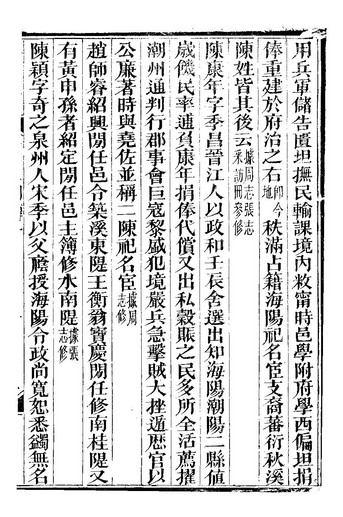 用兵軍儲告匱坦撫民輸課境內敉甯時邑學附府學西偏坦捐
俸重建於府治之右卽今地秩滿占籍海陽祀名宦支裔蕃衍秋溪
陳姓皆其後云據周志張志采訪冊參修
陳康年字季昌晉江人以政和壬辰舍選出知海陽潮陽二縣値
歲饑民率逋負康年捐俸代償又出私穀賑之民多所全活薦擢
潮州通判行郡事會巨寇黎盛犯境嚴兵急擊賊大挫遁歷官以
公廉著時與堯佐並稱二陳祀名宦據周志修
趙師睿紹興閒任邑令築溪東隄王衡翁寶慶閒任修南桂隄又
有黃申孫者紹定閒任邑主簿修水南隄據張志修
陳穎字奇之泉州人宋季以父膽授海陽令政尚寬恕悉蠲無名